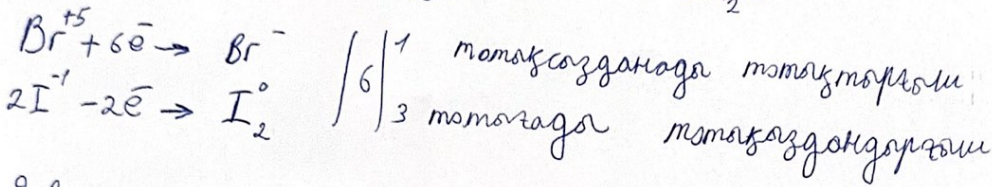 Br⁺⁵ + 6ē → Br⁻ | 6 | 1 тотықсызданады тотықтырғыш
2I⁻¹ - 2ē → I₂⁰ | 3 тотығады тотықсыздандырғыш